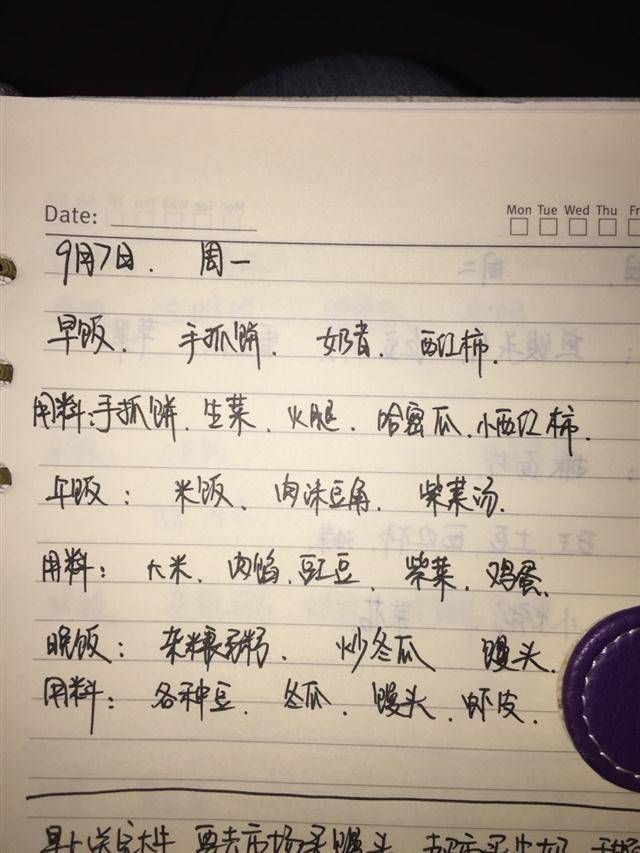 Date:
Mon Tue Wed Thu Fr
9月7日. 周一
早饭. 手抓饼. 奶昔. 西红柿.
用料:手抓饼. 生菜. 火腿. 哈密瓜. 小西红柿.
午饭: 米饭. 肉沫豆角. 柴菜汤.
用料: 大米. 肉馅. 豇豆. 柴菜. 鸡蛋.
晚饭: 杂粮粥. 炒冬瓜 馒头.
用料: 各种豆. 冬瓜. 馒头. 虾皮.
早上送完 要去市场买馒头